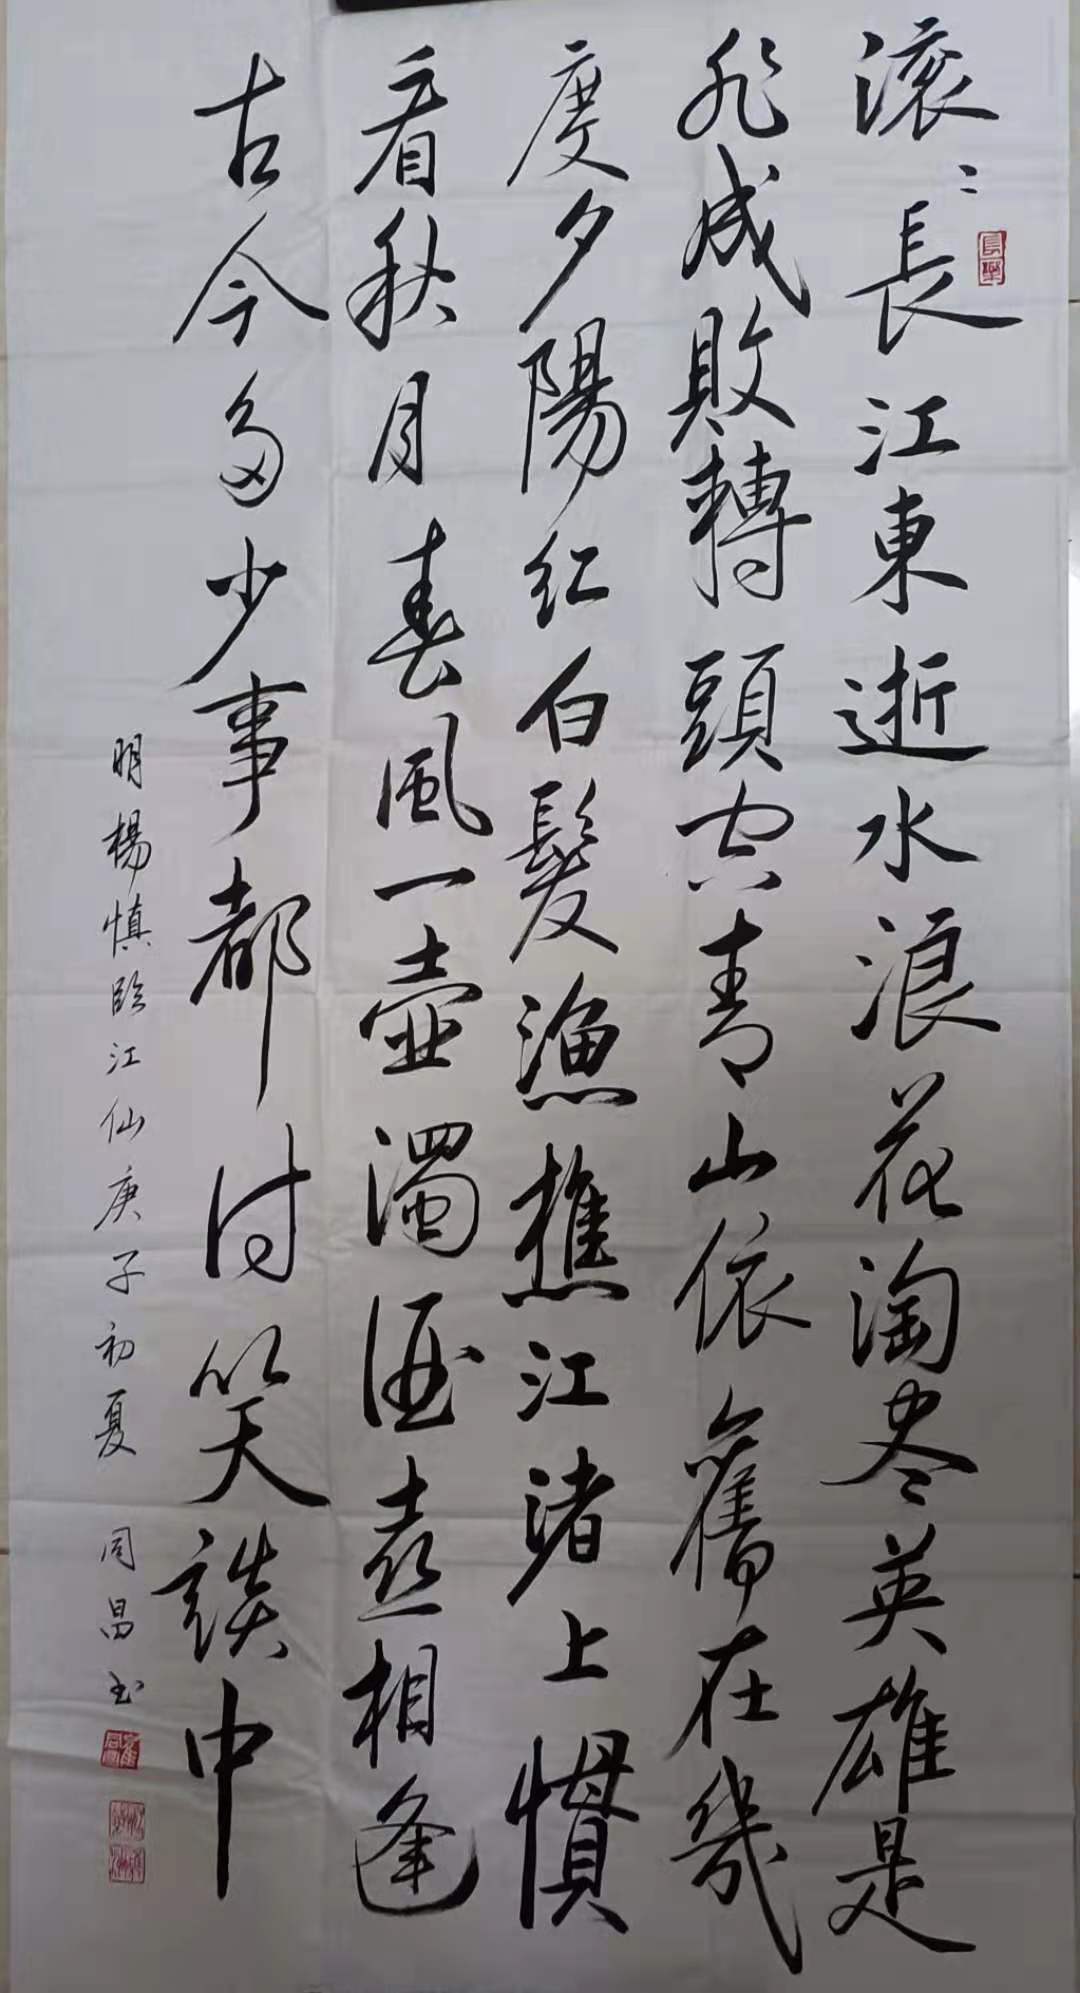 滚〻長江東逝水浪花淘尽英雄是
非成敗轉頭空青山依舊在幾
度夕陽红白髮漁樵江渚上慣
看秋月春風一壶濁酒喜相逢
古今多少事都付笑談中
明楊慎臨江仙庚子初夏 同昌书
長樂